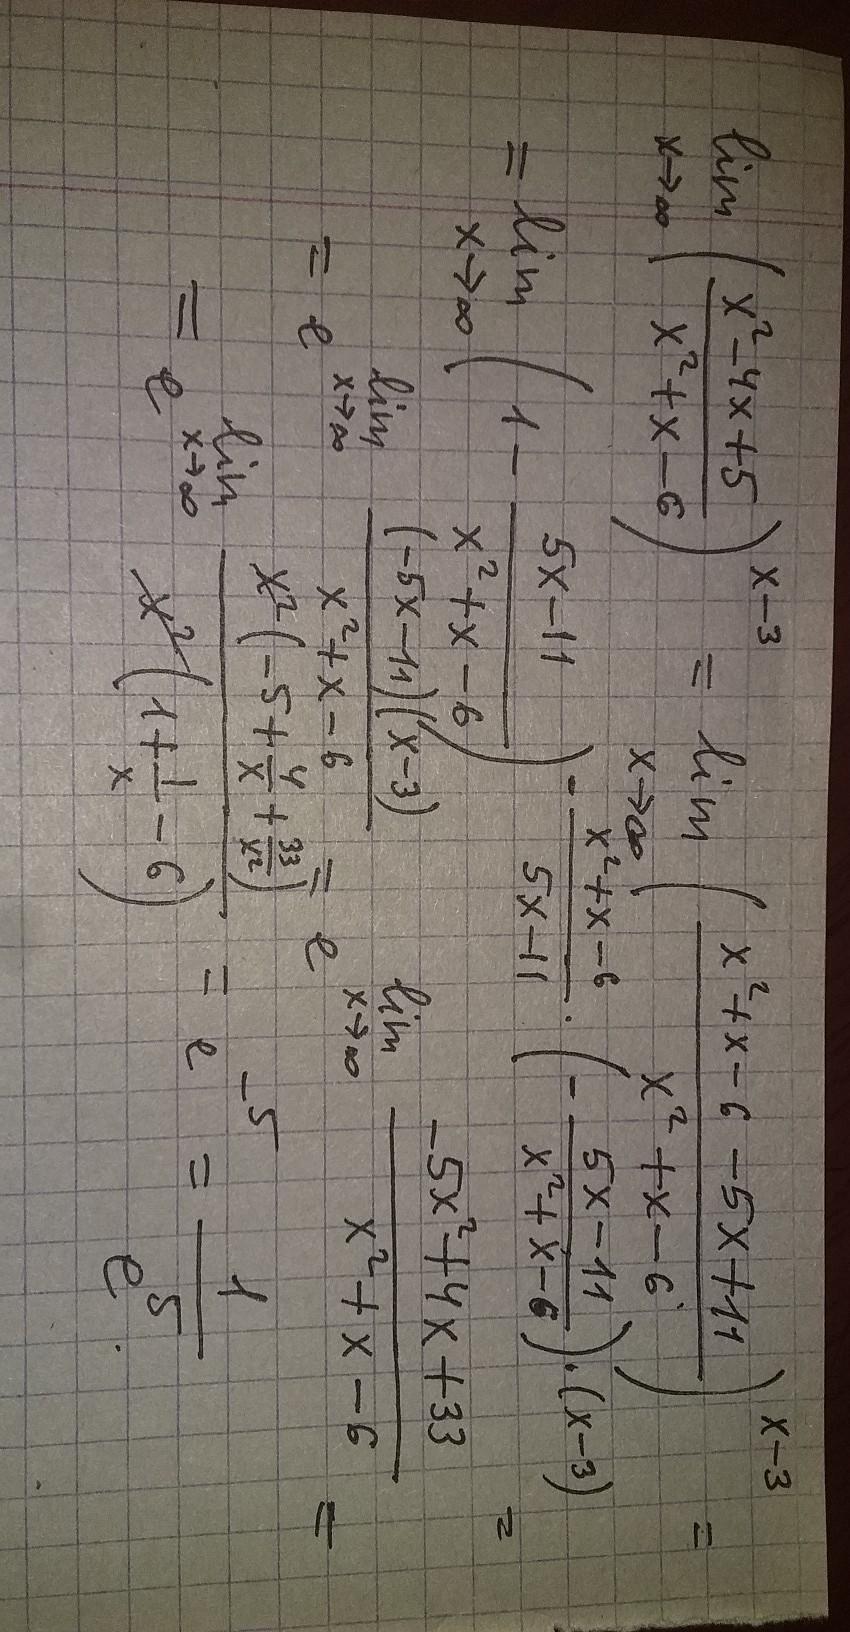 lim x→∞ ((x² - 4x + 5)/(x² + x - 6))^(x-3) = lim x→∞ ((x² + x - 6 - 5x + 11)/(x² + x - 6))^(x-3) =
= lim x→∞ (1 - (5x - 11)/(x² + x - 6))^(-(x² + x - 6)/(5x - 11) · (-(5x - 11)/(x² + x - 6)) · (x-3)) =
= e^(lim x→∞ ((-5x - 11)(x - 3))/(x² + x - 6)) = e^(lim x→∞ (-5x² + 4x + 33)/(x² + x - 6)) =
= e^(lim x→∞ (x²(-5 + 4/x + 33/x²))/(x²(1 + 1/x - 6))) = e^(-5) = 1/e⁵.